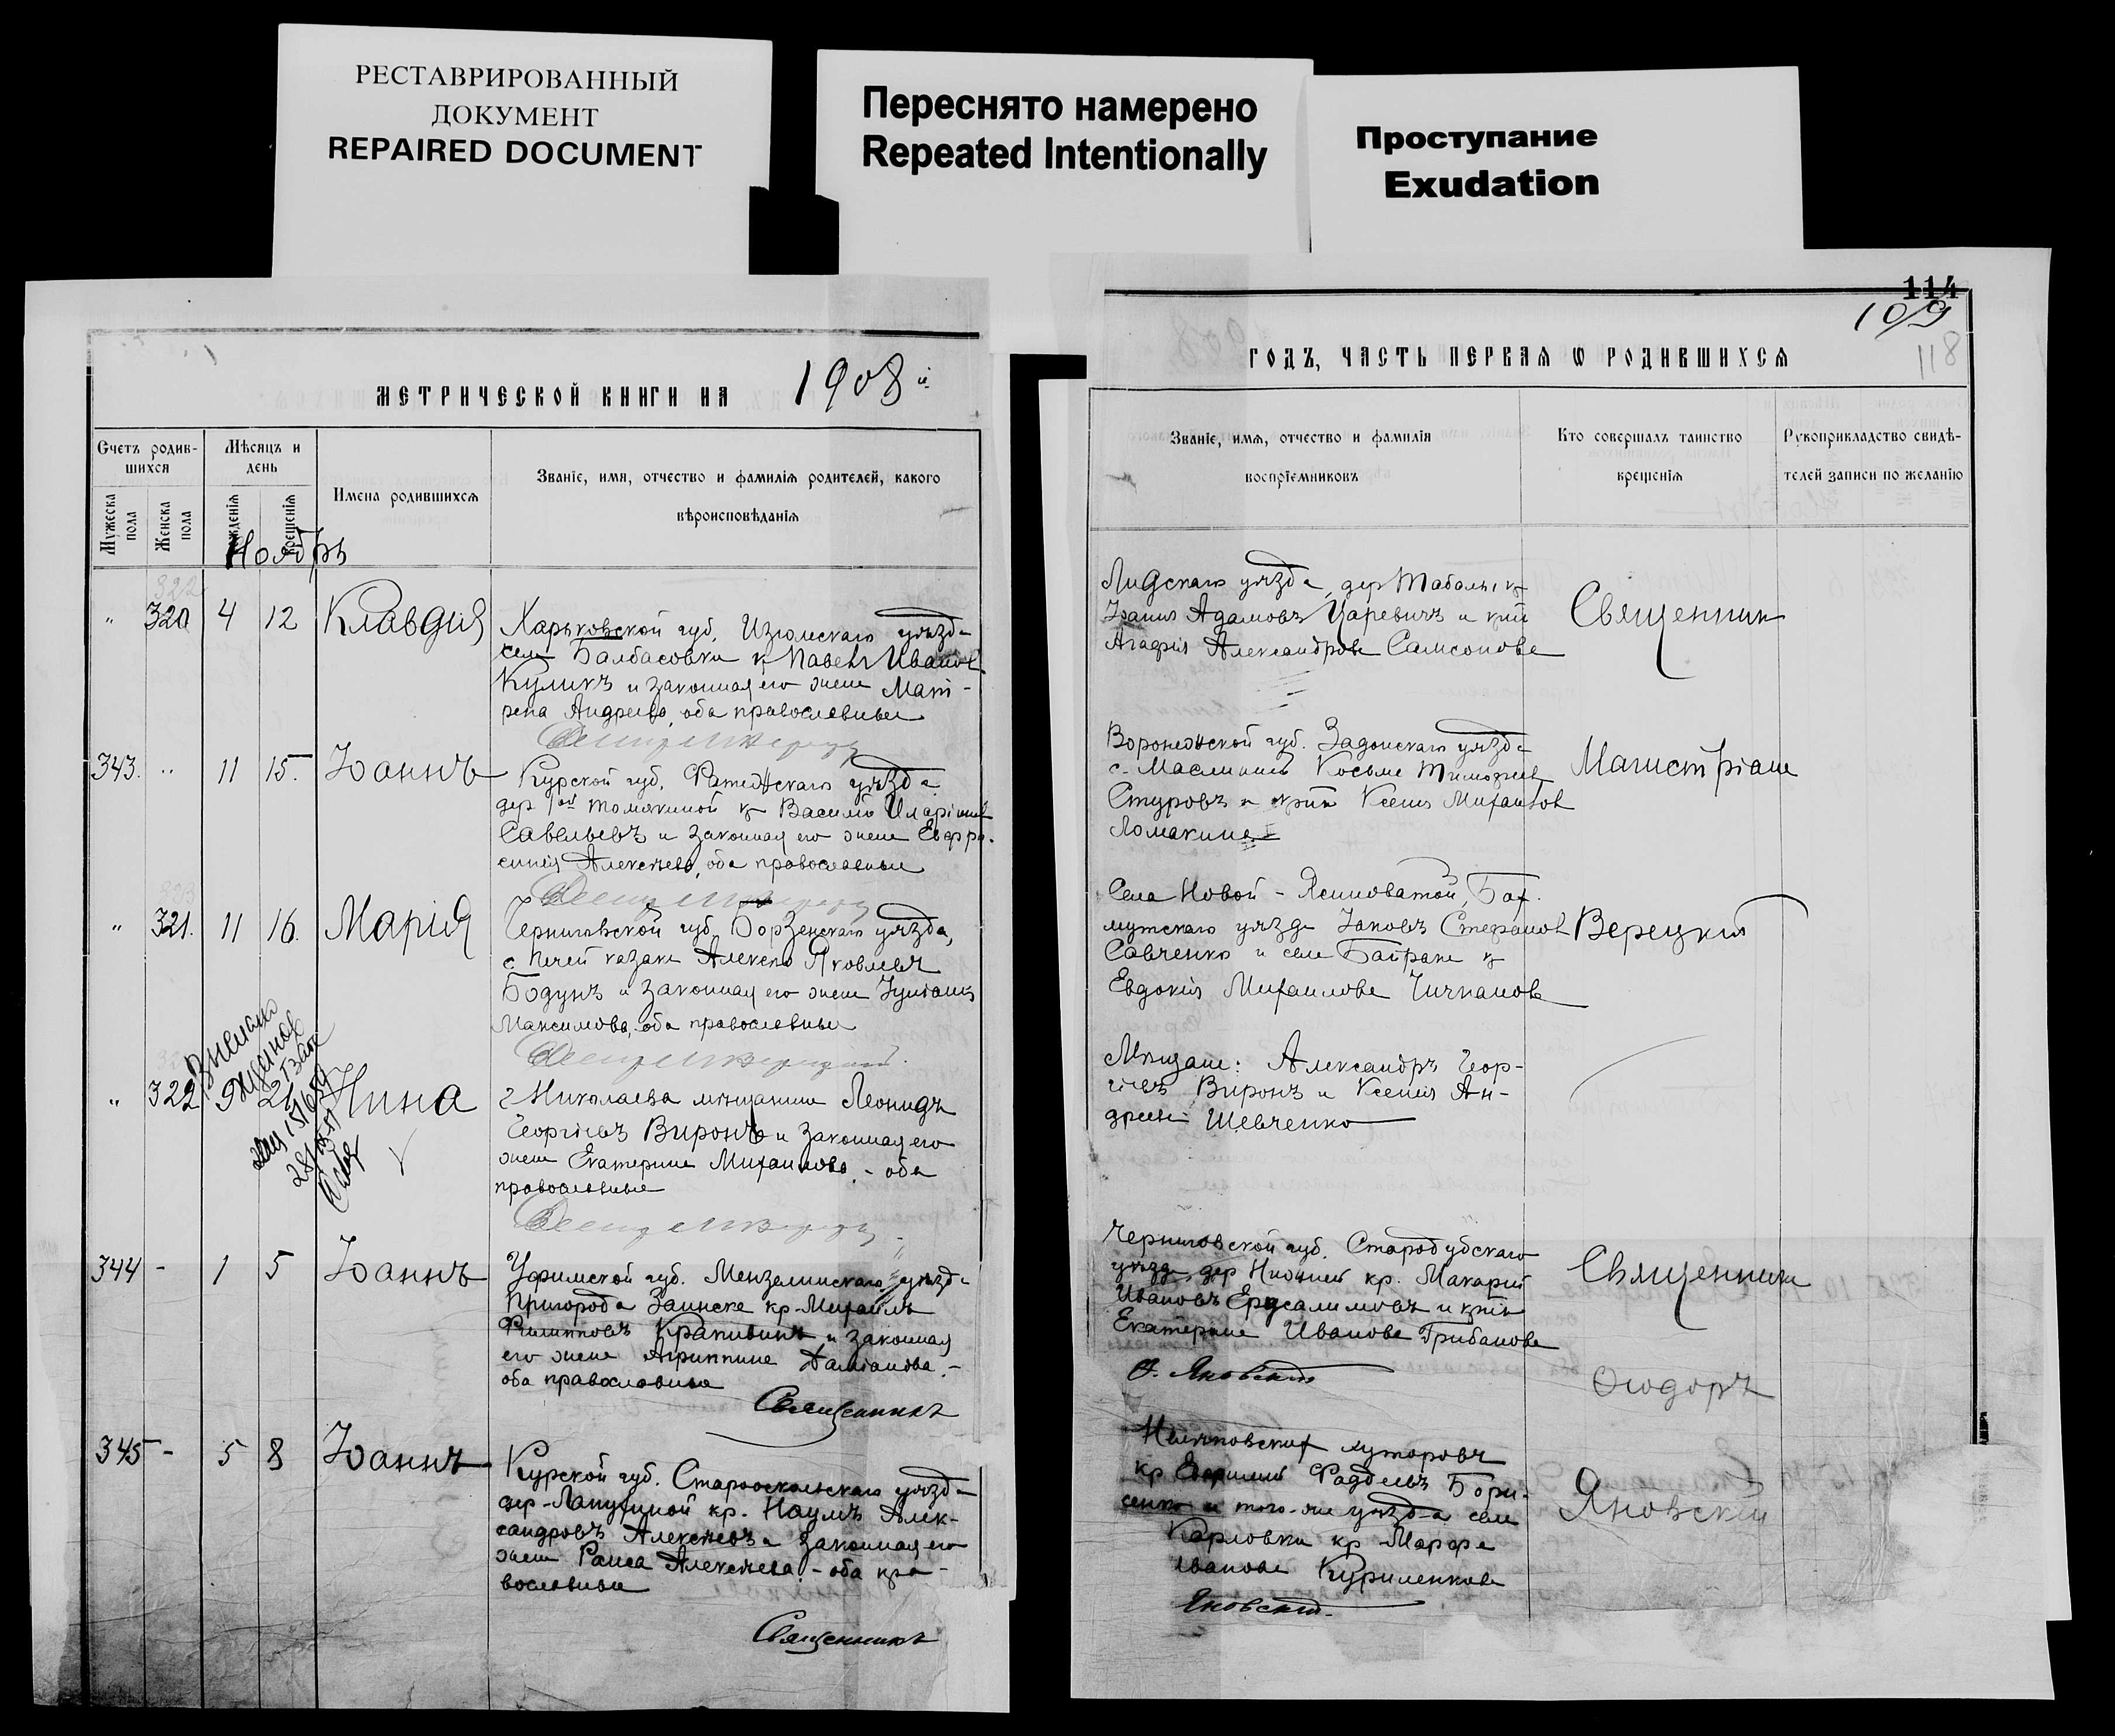 РЕСТАВРИРОВАННЫЙ
ДОКУМЕНТ
REPAIRED DOCUMENT
Переснято намерено
Repeated Intentionally
Проступание
Exudation
МЕТРИЧЕСКОЙ КНИГИ НА 1908 й
Счетъ родив-
шихся
Мужеска пола
Женска пола
Мѣсяцъ и
день
рожденія
крещенія
Имена родившихся
Званіе, имя, отчество и фамилія родителей, какого
вѣроисповѣданія
Ноябрь
" 320 4 12 Клавдія
Харьковской губ. Изюмскаго уѣзда
села Балбасовки кр Павелъ Иванов
Куликъ и законная его жена Мат-
рена Андреева, оба православные
343. " 11 15. Іоаннъ
Курской губ. Фатежскаго уѣзда
дер 1ой кр Василій Иларіонов
Савельевъ и законная его жена Евфро-
синія Алексѣева, оба православные
" 321. 11 16. Марія
Черниговской губ. Борзенскаго уѣзда,
с. Печей казакъ Алексѣй Яковлевъ
Бодунъ и законная его жена Іуліанія
Максимова, оба православные
" 322 9 21 Нина
г Николаева мѣщанинъ Леонидъ
Георгіевъ Виронъ и законная его
жена Екатерина Михаилова, - оба
православные
344 - 1 5 Іоаннъ
Уфимской губ. Мензелинскаго уѣзда
Пригорода Заинска кр. Михаилъ
Филипповъ Крапивинъ и законная
его жена Агриппина Даміанова -
оба православные
Священникъ
345 - 5 8 Іоаннъ
Курской губ. Старооскольскаго уѣзда
дер. Лапугиной кр. Наумъ Алек-
сандровъ Алексѣевъ и законная его
жена Раиса Алексѣева, - оба пра-
вославные
Священникъ
114
109
118
ГОДЪ, ЧАСТЬ ПЕРВАЯ Ѡ РОДИВШИХСЯ
Званіе, имя, отчество и фамилія
воспріемниковъ
Кто совершалъ таинство
крещенія
Рукоприкладство свидѣ-
телей записи по желанію
Лидскаго уѣзда, дер Табалы кр
Іоаннъ Адамовъ Царевичъ и кр
Агафія Александрова Самсонова
Священникъ
Воронежской губ. Задонскаго уѣзда
с. Косьма Тимофеев
Стуровъ и Ксенія Михаилов
Ломакина
Магистріанъ
Села Новой - Ясиноватой, Бах-
мутскаго уѣзда Іаковъ Стефанов
Савченко и села Байрака кр
Евдокія Михаилова Чичканова
Верецкій
Мѣщане: Александръ Геор-
гіевъ Виронъ и Ксенія Ан-
дреева Шевченко
Черниговской губ. Стародубскаго
уѣзда, дер Нижней кр. Макарій
Ивановъ Ерусалимовъ и
Екатерина Иванова Грибанова
Ѳ. Яновскій
Священникъ
Ѳеодоръ
хуторовъ
кр Евфимій Фаддеевъ Бори-
сенко и того-же уѣзда села
Карловки кр Марфа
Иванова Куриленкова
Яновскій
Яновскій